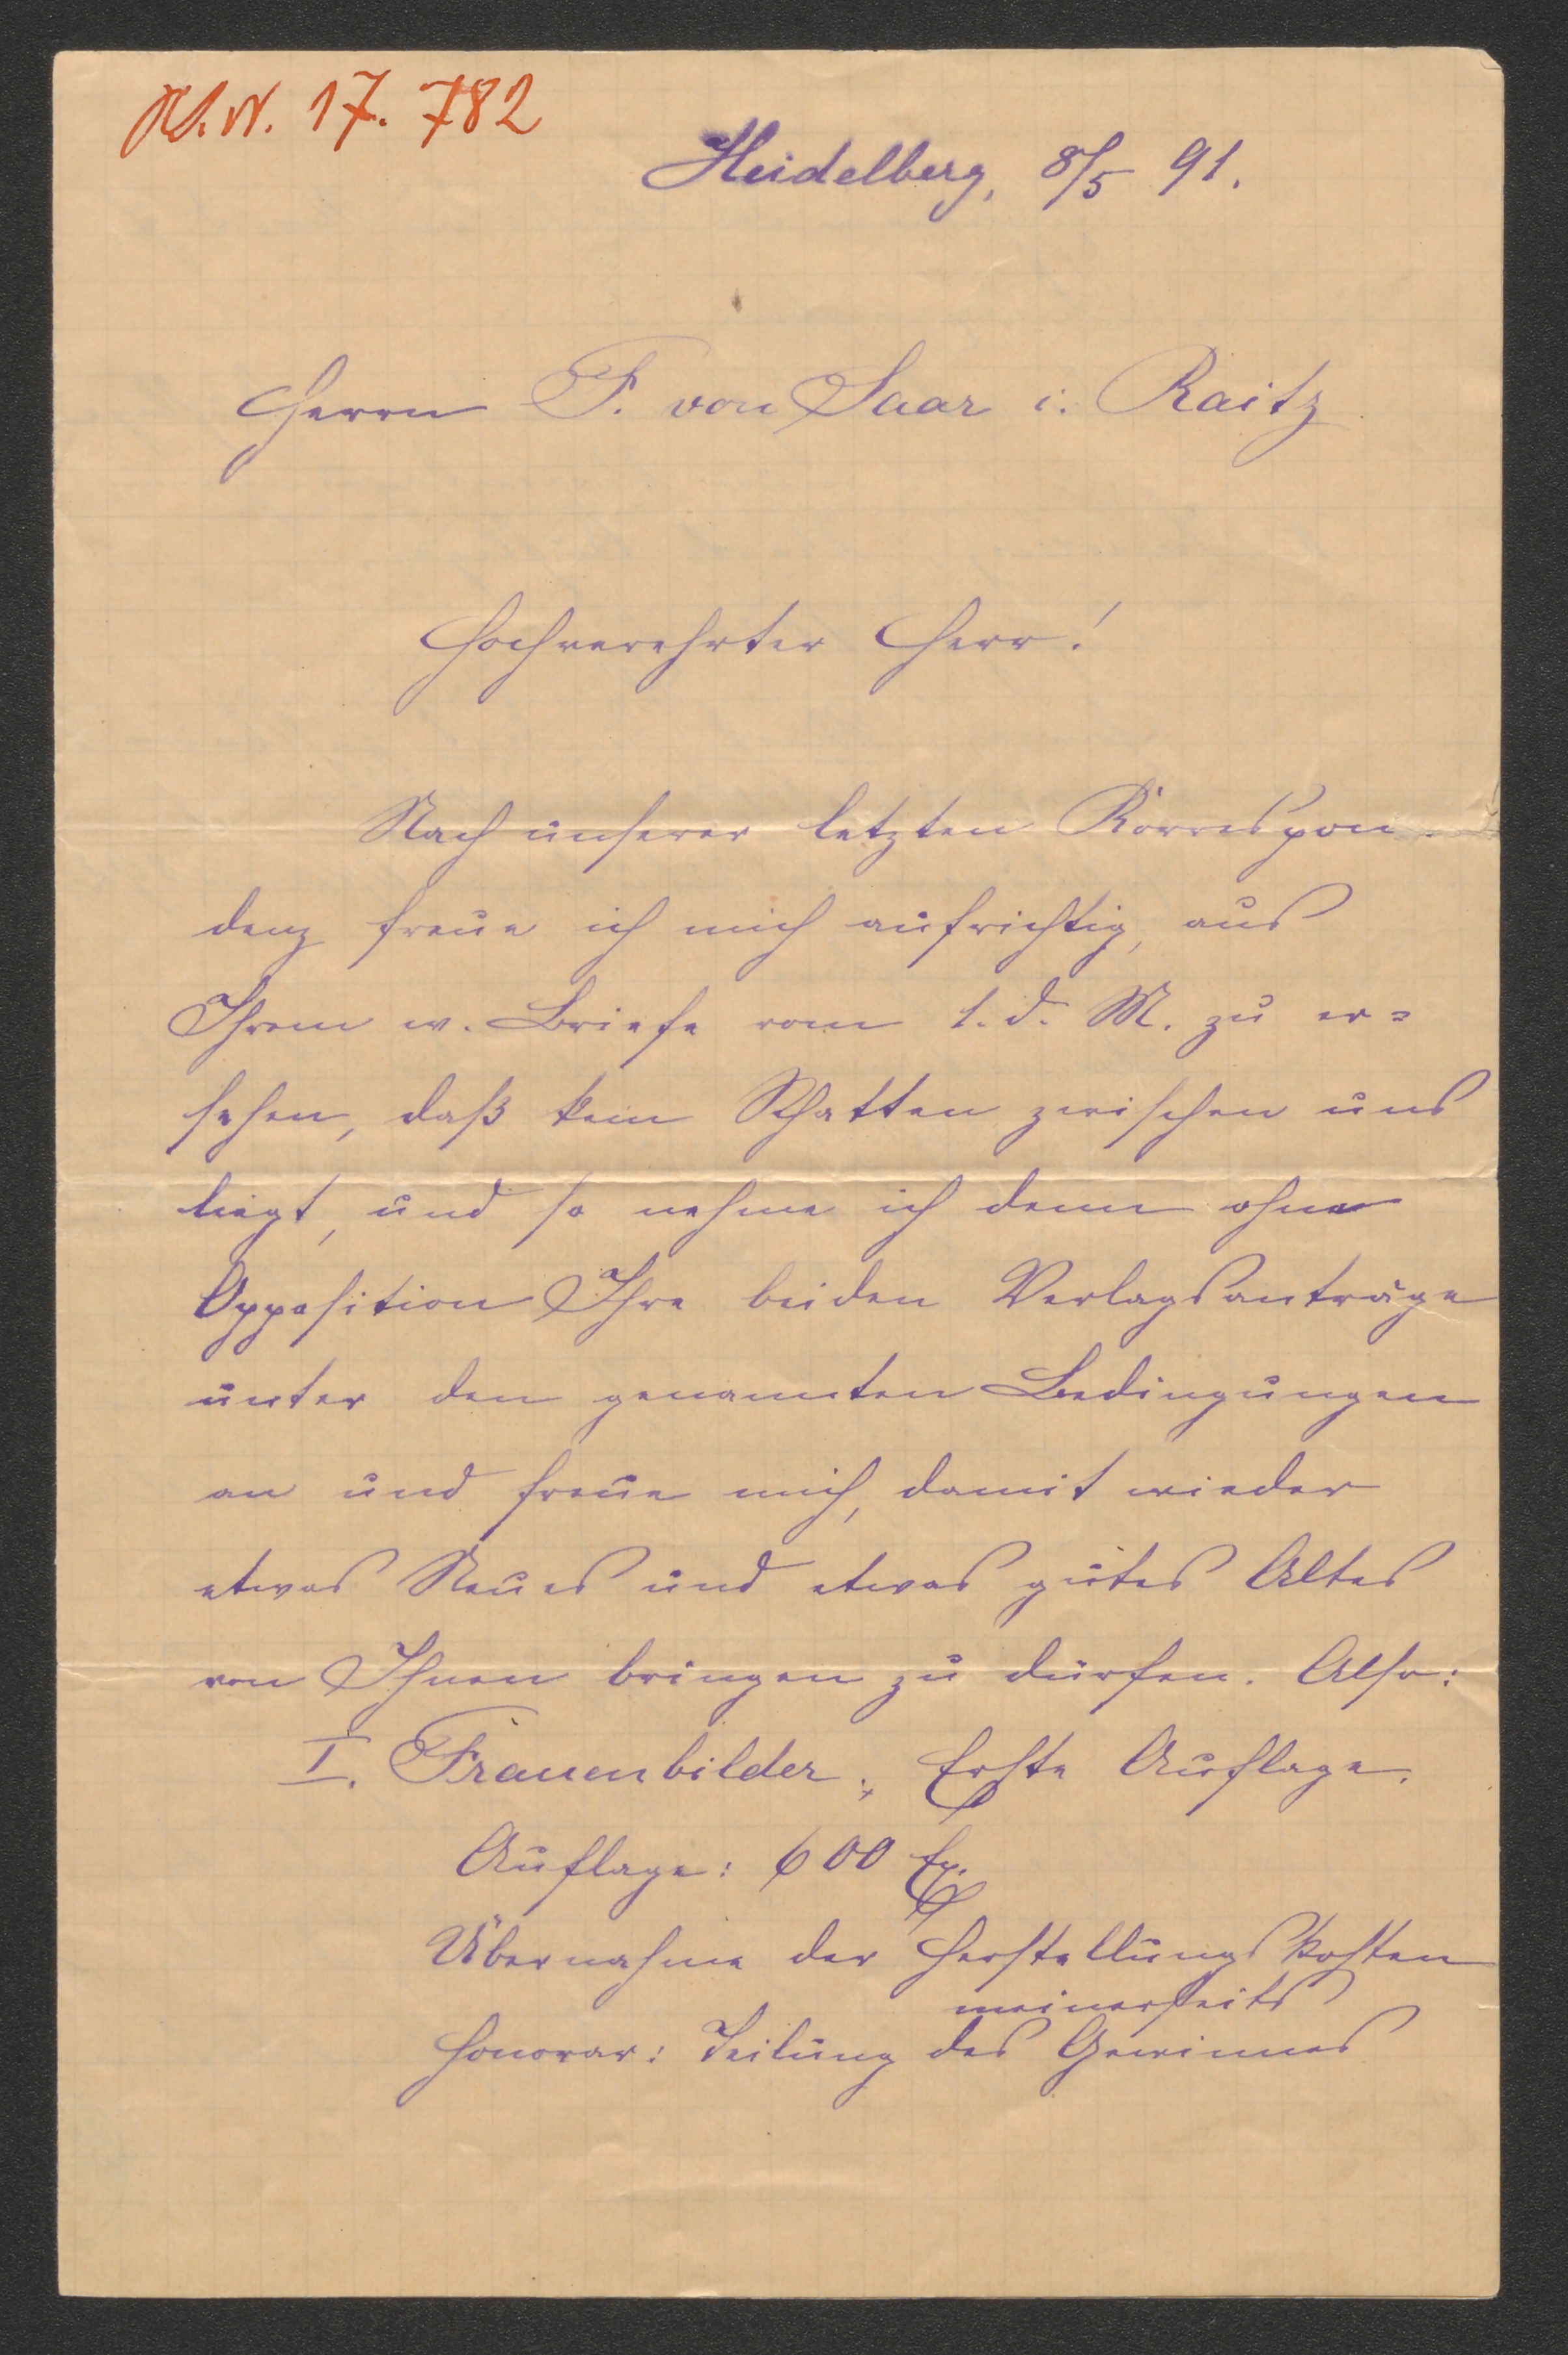 17.782
Heidelberg, 8/5 91.
Herrn F. von Saar i. Raitz
Hochverehrter Herr!
Nach unserer letzten Korrespon-
denz freue ich mich aufrichtig, aus
Ihrem w. Briefe vom 1. d. M. zu er=
sehen, daß kein Schatten zwischen uns
liegt, und so nehme ich denn ohne
Opposition Ihre beiden Verlagsanträge
unter den genannten Bedingungen
an und freue mich, damit wieder
etwas Neues und etwas gutes Altes
von Ihnen bringen zu dürfen. Also:
I. Frauenbilder, Erste Auflage.
Auflage: 600 Ex.
Übernahme der Herstellungskosten
meinerseits
Honorar: Teilung des Gewinnes